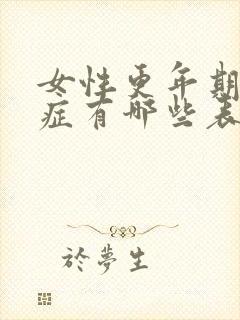 女性更年期
症有哪些表
於夢生